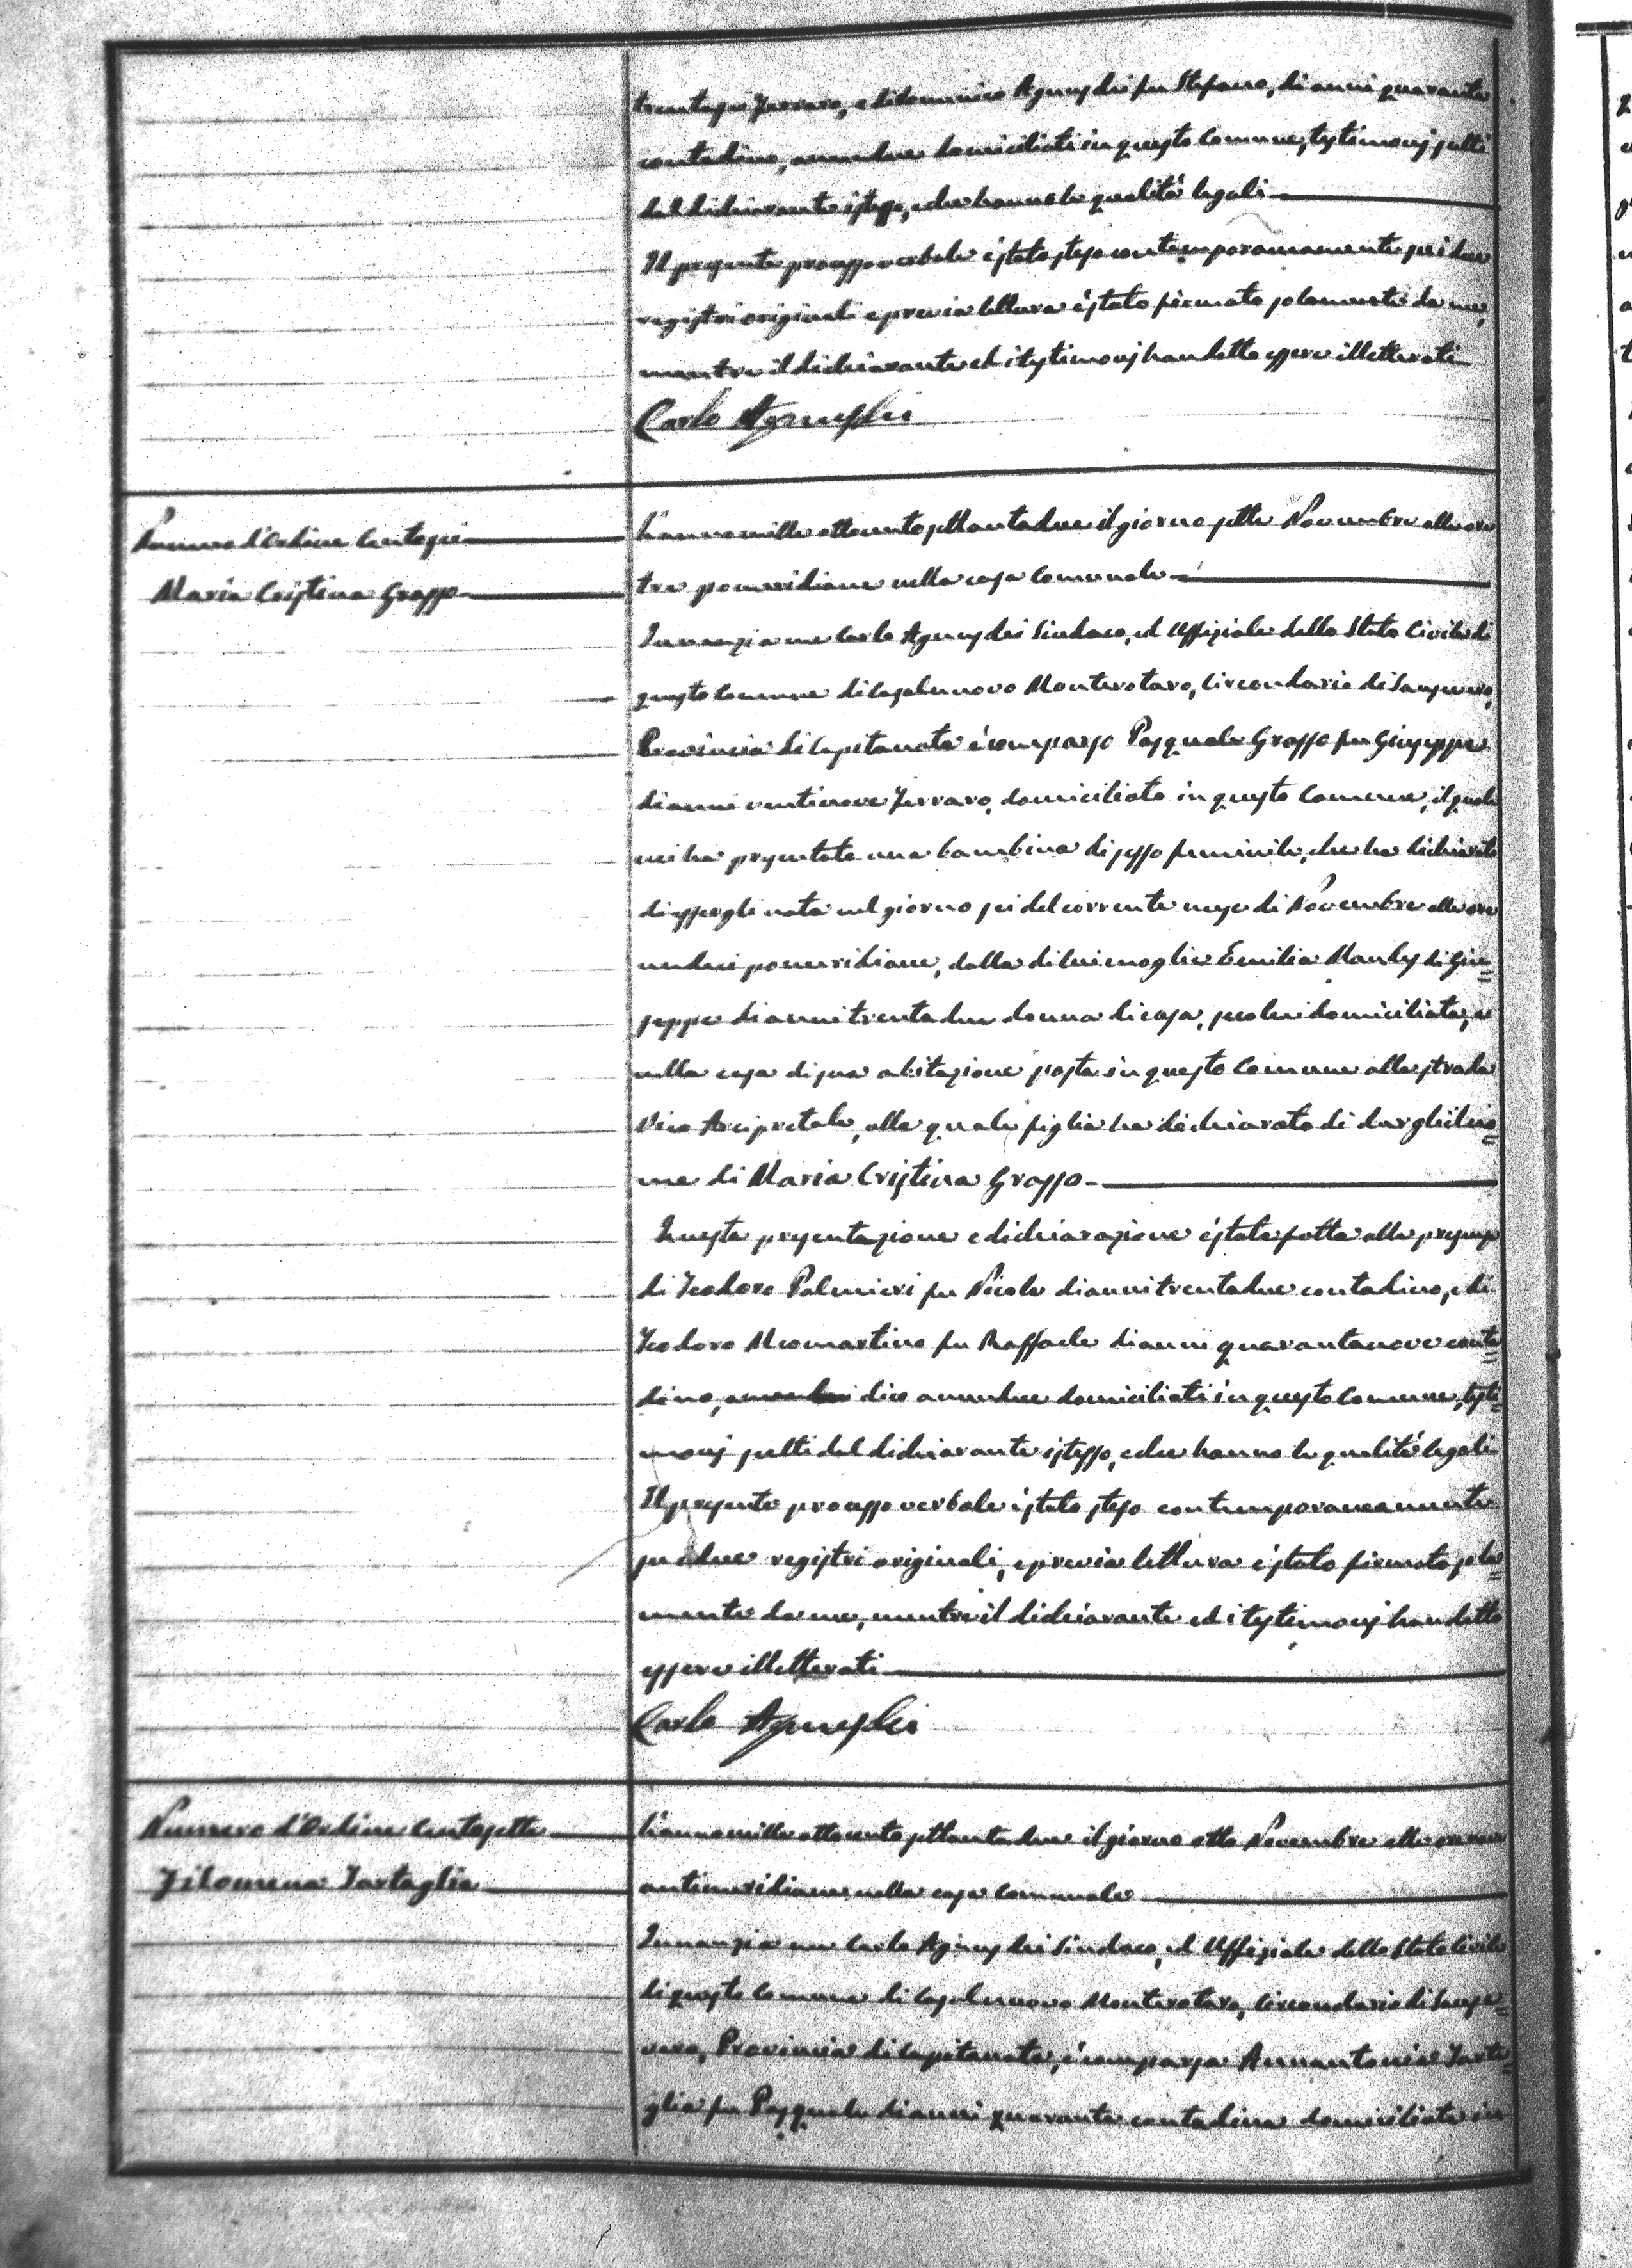 trentasei Ferraro, e di Domenico Agnusdei fu Stefano, di anni quaranta
contadino, amendue domiciliati in questo Comune, testimonj scelti
dal dichiarante istesso, e che hanno le qualità legali
Il presente processo verbale è stato steso contemporaneamente su i due
registri originali e previa lettura è stato firmato solamente da me,
mentre il dichiarante ed i testimonj han detto essere illetterati
Carlo Agnusdei
Numero d'Ordine Centosei
Maria Cristina Grasso
L'anno mille ottocento settantadue il giorno sette Novembre alle ore
tre pomeridiane nella casa Comunale
Innanzi a me Carlo Agnusdei Sindaco, ed Uffiziale dello Stato Civile di
questo Comune di Casalnuovo Monterotaro, Circondario di Sansevero,
Provincia di Capitanata è comparso Pasquale Grasso fu Giuseppe
di anni ventinove Ferraro, domiciliato in questo Comune, il quale
mi ha presentato una bambina di sesso feminile, che ha dichiarato
di essergli nata nel giorno sei del corrente mese di Novembre alle ore
undici pomeridiane, dalla di lui moglie Emilia di Giu=
seppe di anni trentadue donna di casa, seco lui domiciliata, e
nella casa di sua abitazione posta in questo Comune alla strada
Vico Arcipretale, alla quale figlia ha dichiarato di dargli il no=
me di Maria Cristina Grasso
Questa presentazione e dichiarazione è stata fatta alla presenza
di Teodoro Palmieri fu Nicola di anni trentadue contadino, e di
Teodoro Meomartino fu Raffaele di anni quarantanove conta=
dino, dico amendue domiciliati in questo Comune, testi=
monj scelti dal dichiarante istesso, e che hanno le qualità legali
Il presente processo verbale è stato steso contemporaneamente
su i due registri originali, e previa lettura è stato firmato sola=
mente da me, mentre il dichiarante ed i testimonj han detto
essere illetterati
Carlo Agnusdei
Numero d'Ordine Centosette
Filomena Tartaglia
L'anno mille ottocento settantadue il giorno otto Novembre alle ore
antimeridiane nella casa Comunale
Innanzi a me Carlo Agnusdei Sindaco, ed Uffiziale dello Stato Civile
di questo Comune di Casalnuovo Monterotaro, Circondario di Sanse=
vero, Provincia di Capitanata, è comparsa Annantonia Tarta=
glia fu Pasquale di anni quaranta contadina domiciliata in